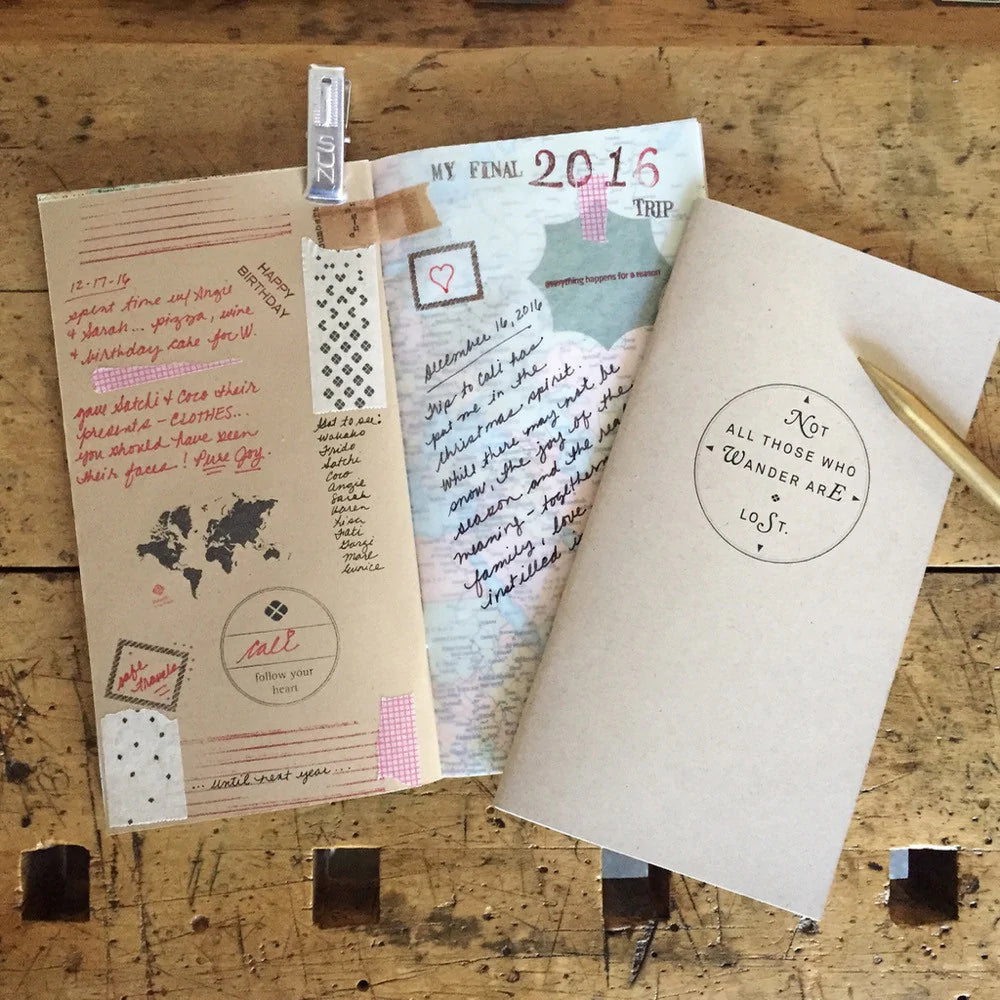 SUN
12-17-16
spent time w/ Angie
& Sarah... pizza, wine
& birthday cake for W.
HAPPY
BIRTHDAY
gave Satchi & Coco their
presents - CLOTHES...
you should have seen
their faces! Pure Joy.
Got to see:
Wakako
Frido
Satchi
Coco
Angie
Sarah
Karen
Lisa
Pati
Gorgi
Mare
Eunice
safe
travels
cali
follow your
heart
... until next year...
MY FINAL 2016
TRIP
everything happens for a reason
December 16, 2016
Trip to Cali has
put me in the
Christmas spirit.
While there may not be
snow, the joy of the
season and the real
meaning - together
family, love
instilled
NOT
ALL THOSE WHO
WANDER ARE
LOST.